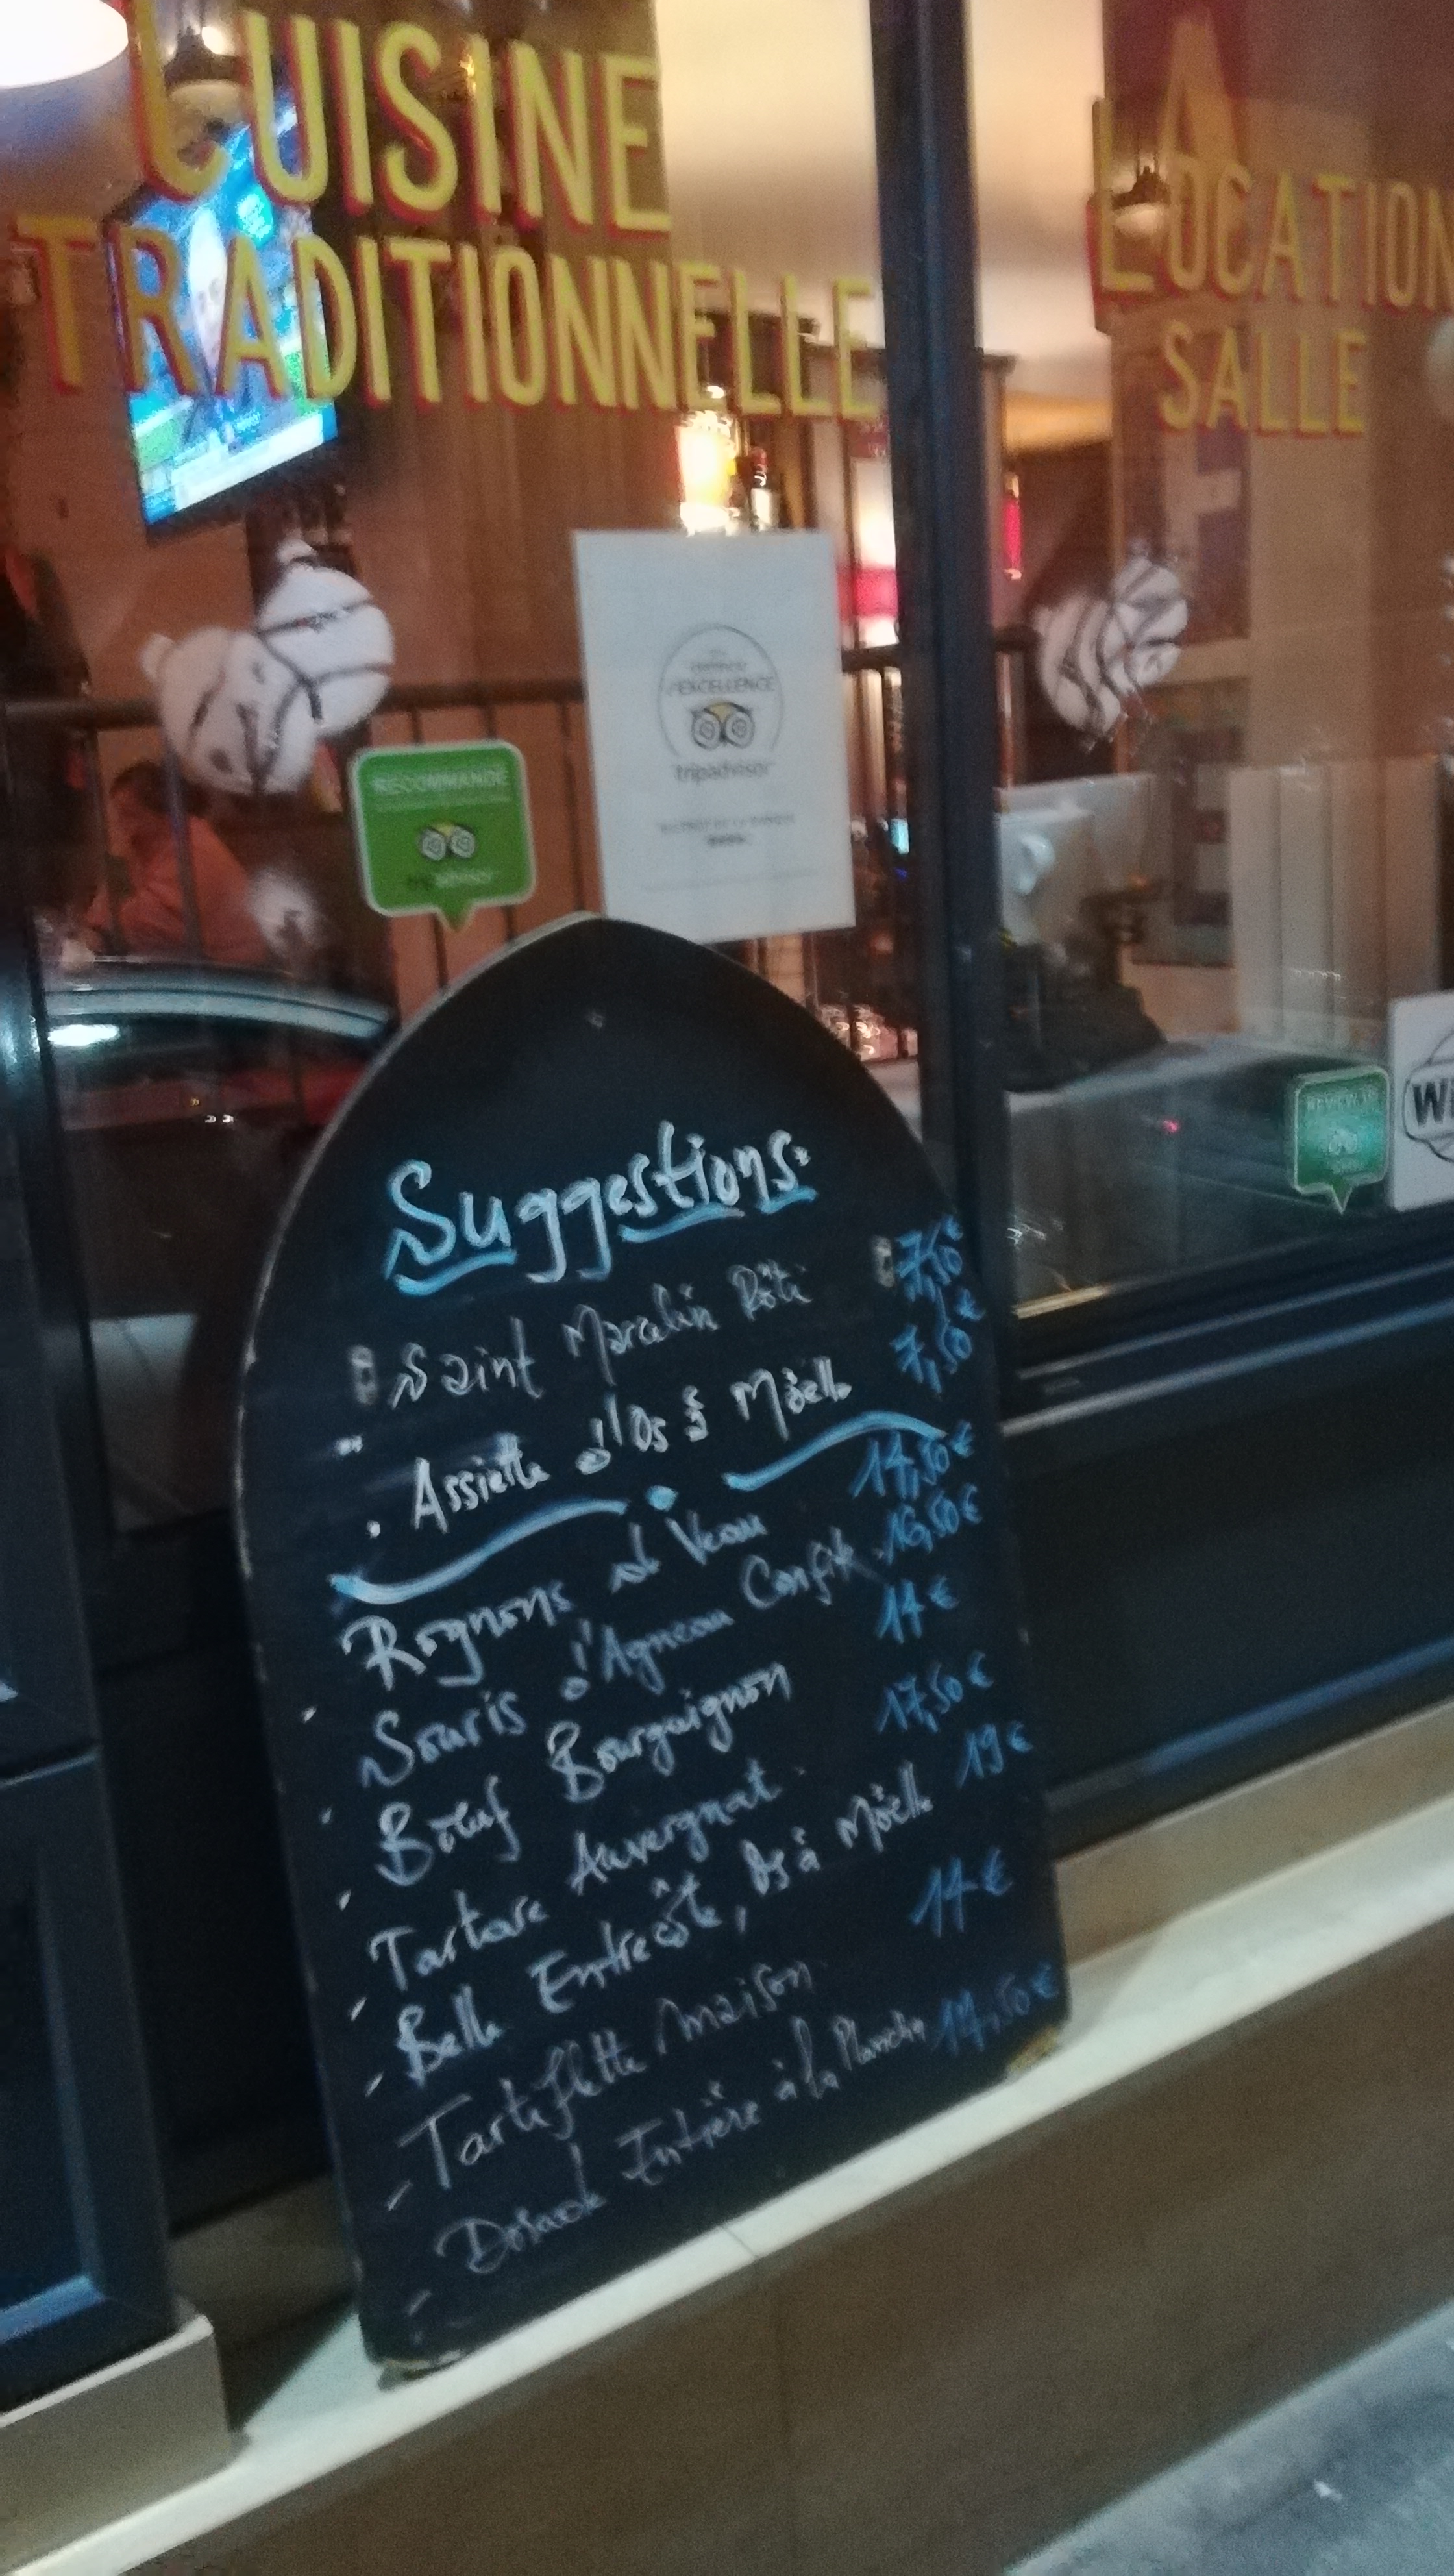 CUISINE
TRADITIONNELLE
LOCATION
SALLE
D'EXCELLENCE
tripadvisor
RECOMMANDÉ
tripadvisor
WI
Suggestions
Saint Marcelin Rôti 7,50€
• Assiette d'Os à Möelle 7,50€
- Rognons de Veau 14,50€
- Souris d'Agneau Confite 16,50€
- Bœuf Bourguignon 14€
- Tartare Auvergnat 17,50€
- Belle Entrecôte, Os à Möelle 19€
- Tartiflette maison 14€
- Dorade Entière à la Plancha 14,50€